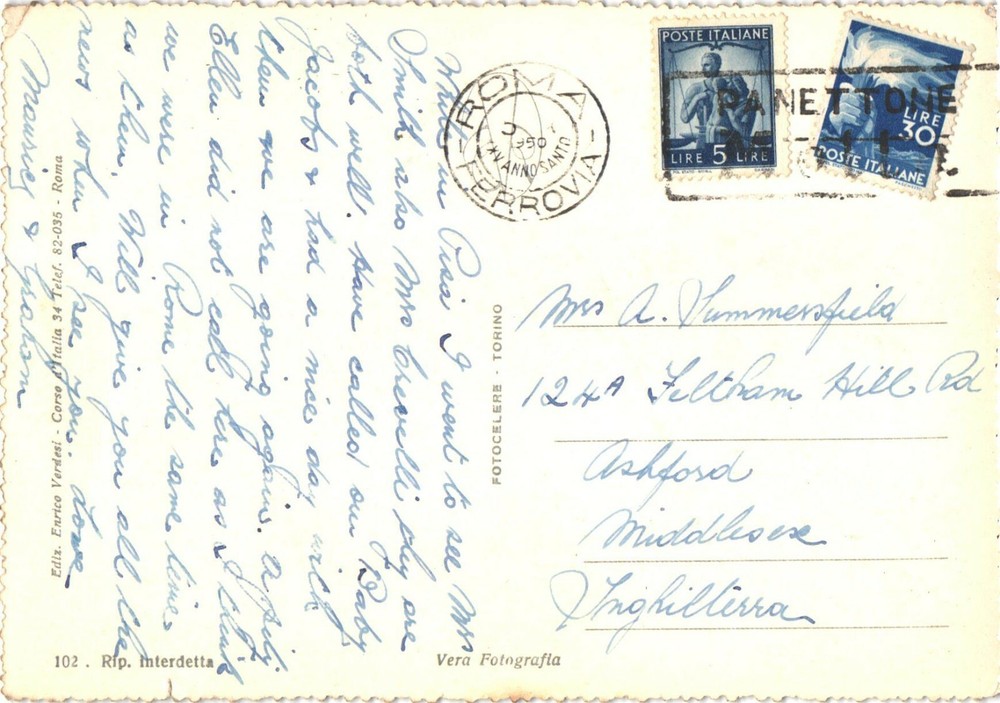 While in Pisa I went to see Mrs
Smith also Mrs Crevelli they are
both well. Have called on Baby
Jacobs & had a nice day with
them we are going again. A pity
Ellen did not call here as I think
we were in Rome the same time
as them. Will give you all the
news when I see you. Love
Maurice & Graham
Ediz. Enrico Verdesi - Corso d'Italia 34 Telef. 82-035 - Roma
102 . Rip. Interdetta
Vera Fotografia
FOTOCELERE - TORINO
ROMA
1950
ANNO SANTO
- FERROVIA -
POSTE ITALIANE
LIRE 5 LIRE
LIRE
30
POSTE ITALIANE
PANETTONE
Mrs A. Summersfield
124A Feltham Hill Rd
Ashford
Middlesex
Inghilterra